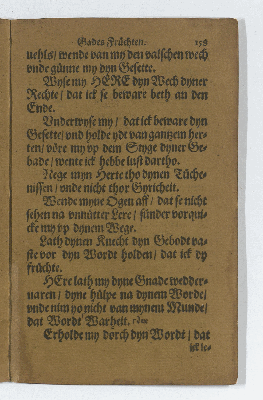 Gades Früchten. 159
uehls / wende van my den valschen wech
vnde günne my dyn Gesette.
Wyse my HERE dyn Wech dyner
Rechte / dat ick se beware beth an den
Ende.
Underwyse my / dat ick beware dyn
Gesette / vnd holde ydt van gantzem her-
ten / vöre my vp dem Styge dyner Ge-
bade / wente ick hebbe lust dartho.
Nege myn Herte tho dynen Tüche-
nissen / vnde nicht thor Gyricheit.
Wende myne Ogen aff / dat se nicht
sehen na vnnütter Lere / sünder vorqui-
cke my vp dynem Wege.
Lath dynen Knecht dyn Gebodt va-
ste vor dyn Wordt holden / dat ick dy
früchte.
HEre lath my dyne Gnade wedder-
uaren / dyne hülpe na dynem Worde /
vnde nim yo nicht van mynem Munde /
dat Wordt Warheit.
Erholde my dörch dyn Wordt / dat
ick le-